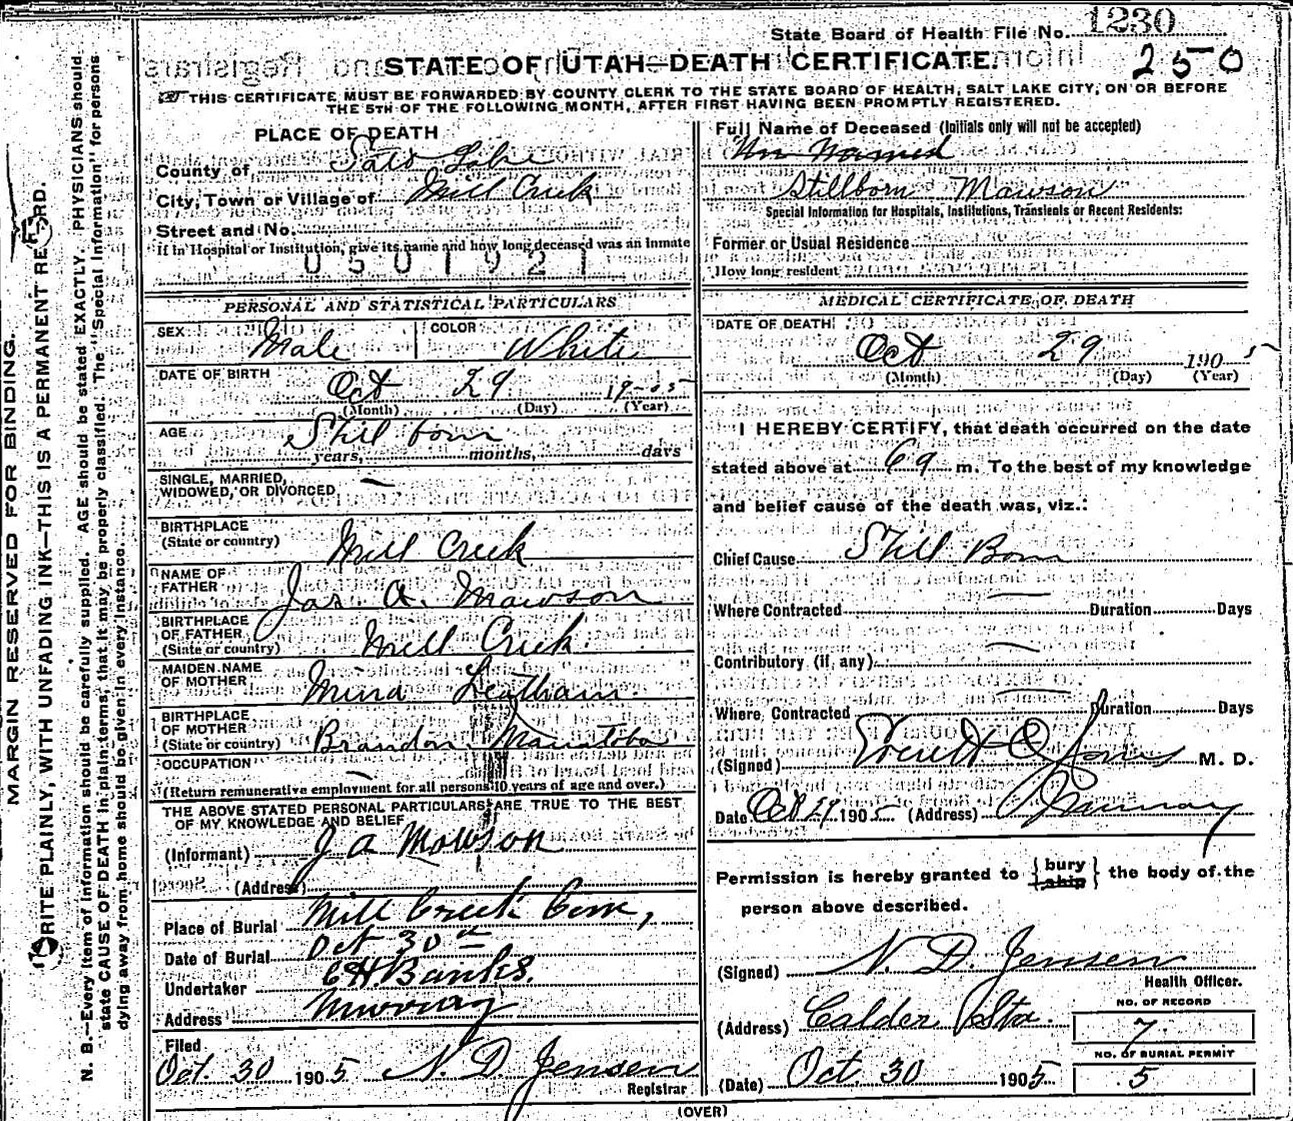 State Board of Health File No. 1230
250
STATE OF UTAH—DEATH CERTIFICATE.
THIS CERTIFICATE MUST BE FORWARDED BY COUNTY CLERK TO THE STATE BOARD OF HEALTH, SALT LAKE CITY, ON OR BEFORE
THE 5TH OF THE FOLLOWING MONTH, AFTER FIRST HAVING BEEN PROMPTLY REGISTERED.
MARGIN RESERVED FOR BINDING.
WRITE PLAINLY, WITH UNFADING INK—THIS IS A PERMANENT RECORD.
N. B.—Every item of information should be carefully supplied. AGE should be stated EXACTLY. PHYSICIANS should
state CAUSE OF DEATH in plain terms, that it may be properly classified. The "Special Information" for persons
dying away from home should be given in every instance.
PLACE OF DEATH
County of Salt Lake
City, Town or Village of Mill Creek
Street and No.
If in Hospital or Institution, give its name and how long deceased was an inmate
0501921
PERSONAL AND STATISTICAL PARTICULARS
SEX Male COLOR White
DATE OF BIRTH Oct 29 1905
(Month) (Day) (Year)
AGE Still born
years, months, days
SINGLE, MARRIED,
WIDOWED, OR DIVORCED —
BIRTHPLACE
(State or country) Mill Creek
NAME OF
FATHER Jas A. Mawson
BIRTHPLACE
OF FATHER
(State or country) Mill Creek.
MAIDEN NAME
OF MOTHER Mina Leatham.
BIRTHPLACE
OF MOTHER
(State or country) Brandon Manatoba
OCCUPATION —
(Return remunerative employment for all persons 10 years of age and over.)
THE ABOVE STATED PERSONAL PARTICULARS ARE TRUE TO THE BEST
OF MY KNOWLEDGE AND BELIEF
(Informant) J A Mawson
(Address)
Place of Burial Mill Creek Cem,
Date of Burial Oct 30th
Undertaker C H. Banks.
Address Murray
Filed
Oct. 30 1905 N. D. Jensen
Registrar
Full Name of Deceased (Initials only will not be accepted)
Un Named
Stillborn Mawson
Special Information for Hospitals, Institutions, Transients or Recent Residents:
Former or Usual Residence
How long resident
MEDICAL CERTIFICATE OF DEATH
DATE OF DEATH
Oct 29 1905
(Month) (Day) (Year)
I HEREBY CERTIFY, that death occurred on the date
stated above at 6 a m. To the best of my knowledge
and belief cause of the death was, viz.:
Chief Cause Still Born
Where Contracted — Duration Days
Contributory (if any) —
Where Contracted — Duration Days
(Signed) Everett O Jones M. D.
Date Oct 29 1905 (Address) Murray
Permission is hereby granted to { bury
ship } the body of the
person above described.
(Signed) N. D. Jensen
Health Officer.
(Address) Calder Sta.
NO. OF RECORD
7
NO. OF BURIAL PERMIT
5
(Date) Oct, 30 1905
(OVER)